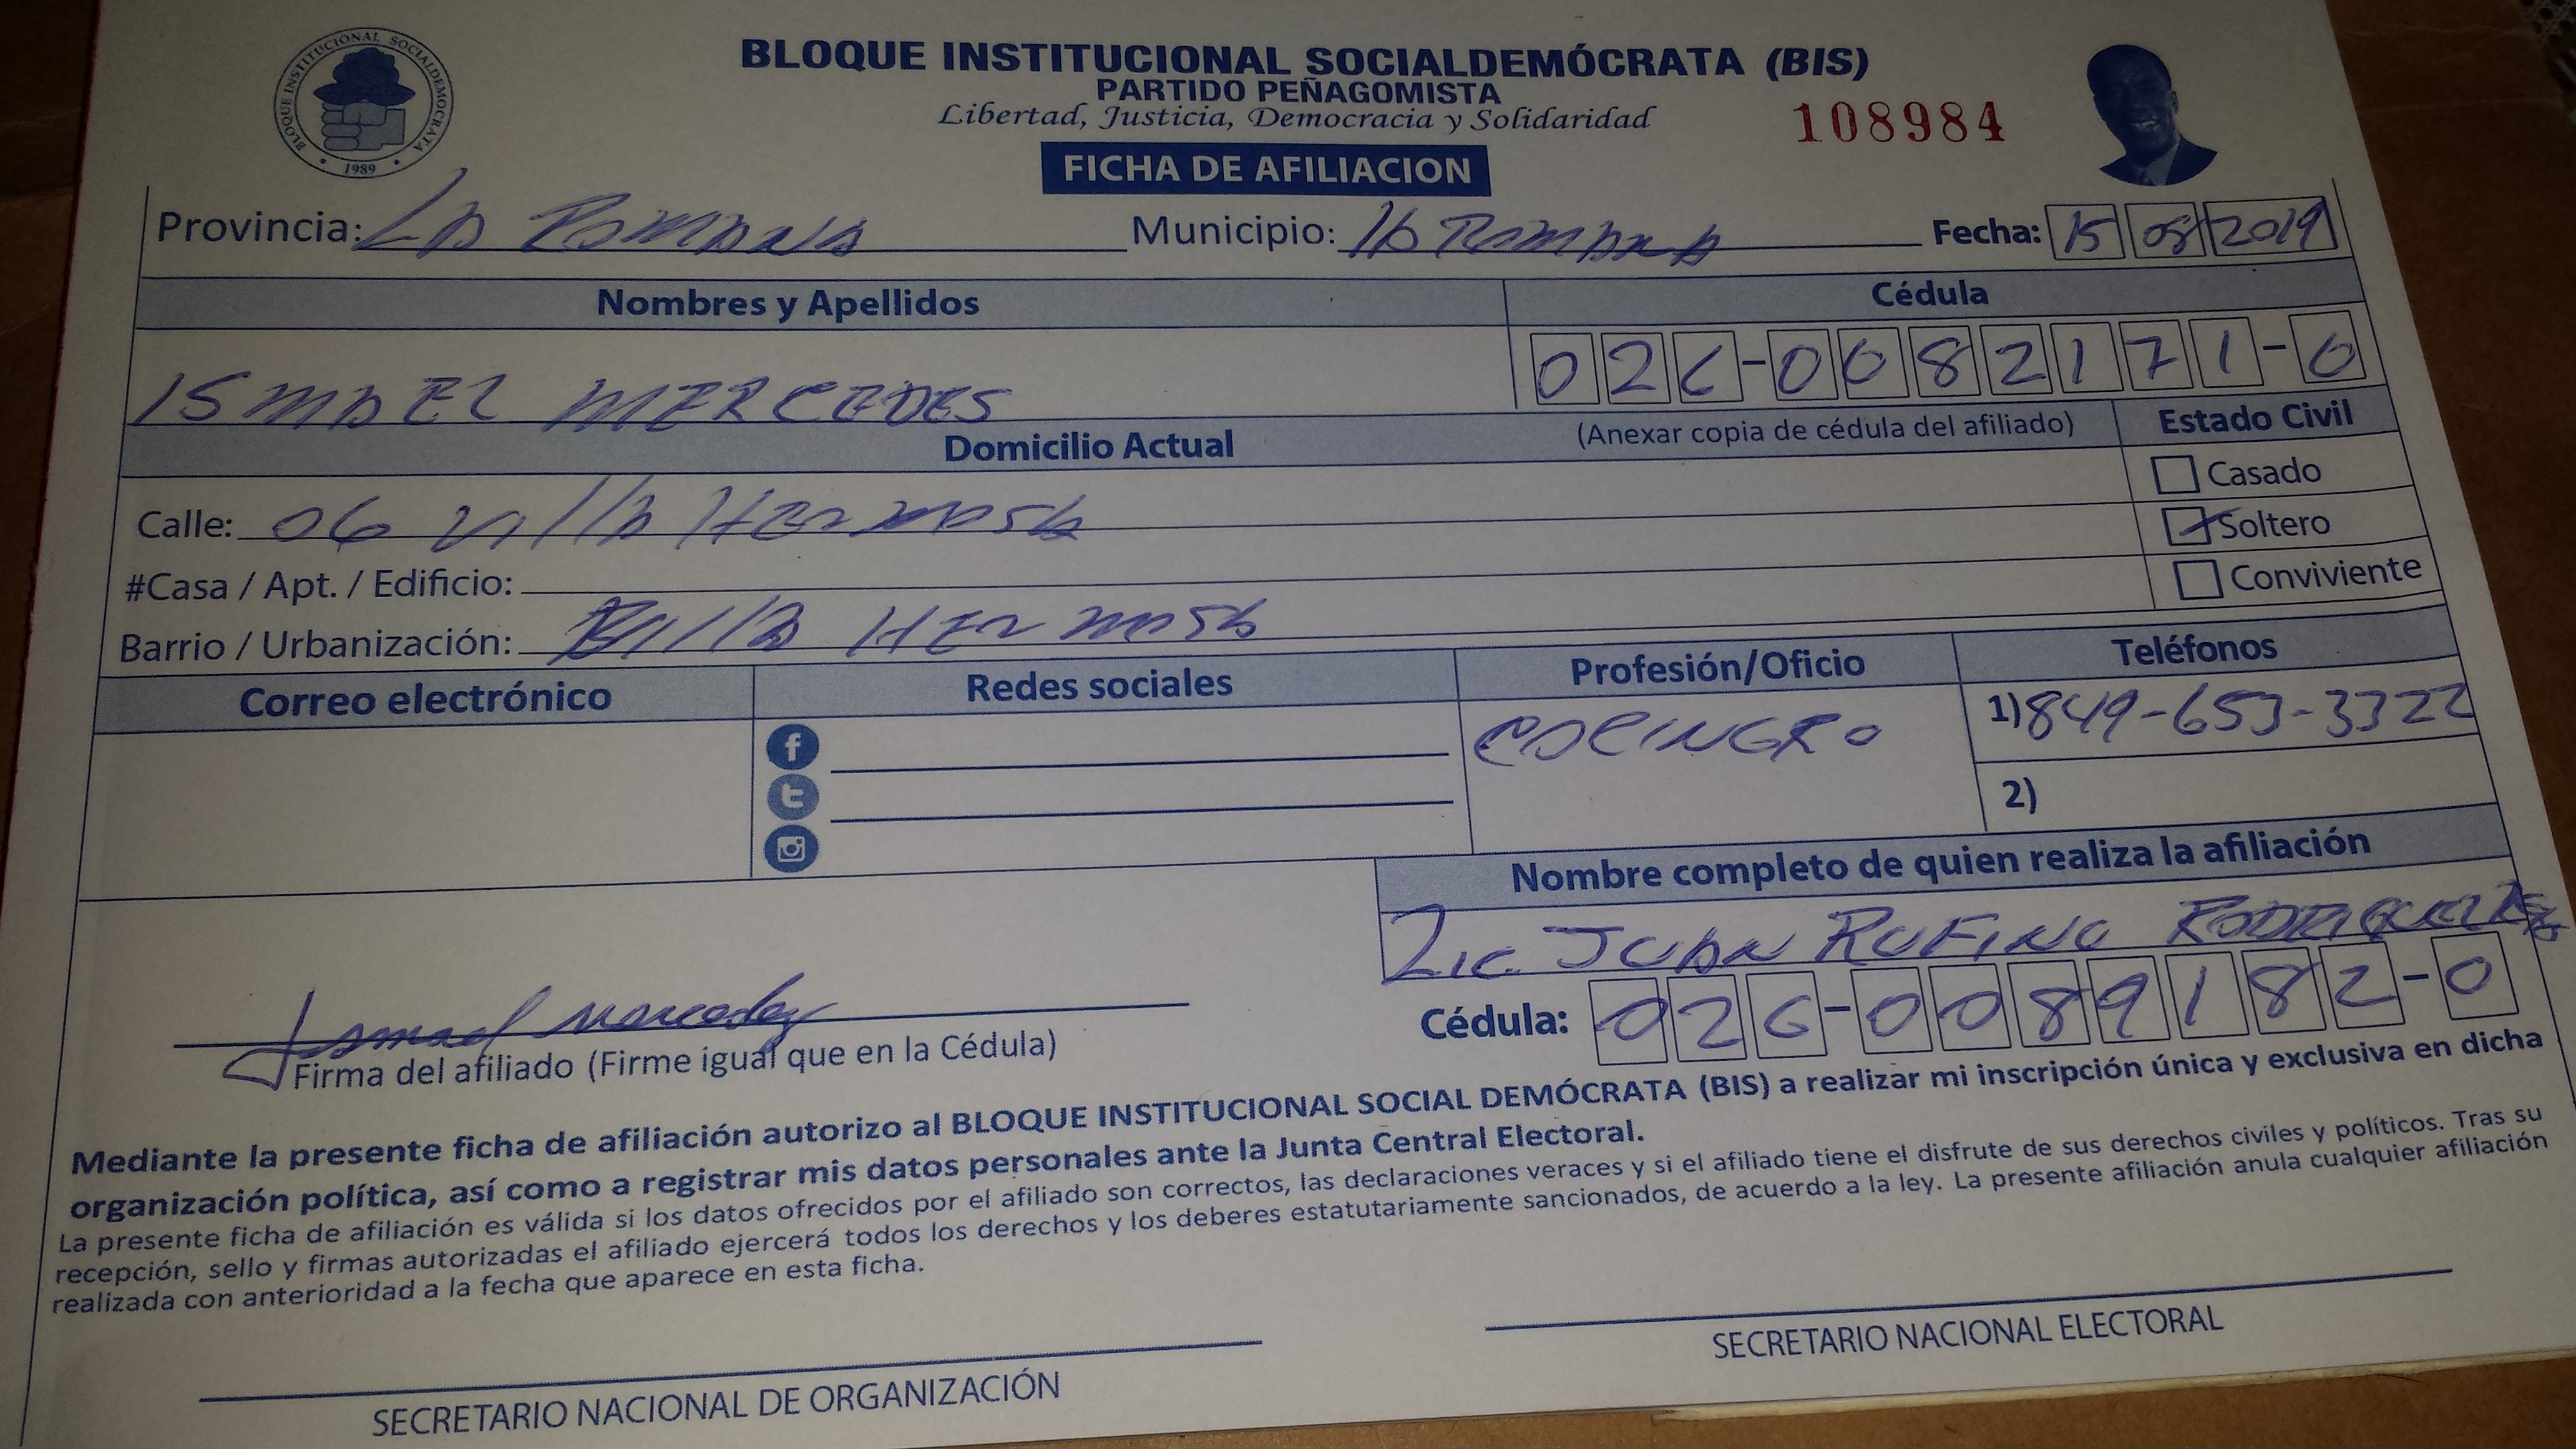 BLOQUE INSTITUCIONAL SOCIALDEMOCRATA
1989
BLOQUE INSTITUCIONAL SOCIALDEMÓCRATA (BIS)
PARTIDO PEÑAGOMISTA
Libertad, Justicia, Democracia y Solidaridad
108984
FICHA DE AFILIACION
Provincia: LA ROMANA Municipio: lA ROMANA Fecha: 15 08 2019
Nombres y Apellidos Cédula
ISMAEL MERCEDES 026-0082171-0
Domicilio Actual (Anexar copia de cédula del afiliado) Estado Civil
Casado
Calle: 06 villA HERmosA Soltero
#Casa / Apt. / Edificio: Conviviente
Barrio / Urbanización: BillA HERmosA
Correo electrónico Redes sociales Profesión/Oficio Teléfonos
f COCINERO 1) 849-653-3322
2)
Nombre completo de quien realiza la afiliación
Lic. JUAN RUFINO RODRIGUEZ
Ismael Mercedes
Cédula: 026-0089182-0
Firma del afiliado (Firme igual que en la Cédula)
Mediante la presente ficha de afiliación autorizo al BLOQUE INSTITUCIONAL SOCIAL DEMÓCRATA (BIS) a realizar mi inscripción única y exclusiva en dicha
organización política, así como a registrar mis datos personales ante la Junta Central Electoral.
La presente ficha de afiliación es válida si los datos ofrecidos por el afiliado son correctos, las declaraciones veraces y si el afiliado tiene el disfrute de sus derechos civiles y políticos. Tras su
recepción, sello y firmas autorizadas el afiliado ejercerá todos los derechos y los deberes estatutariamente sancionados, de acuerdo a la ley. La presente afiliación anula cualquier afiliación
realizada con anterioridad a la fecha que aparece en esta ficha.
SECRETARIO NACIONAL DE ORGANIZACIÓN SECRETARIO NACIONAL ELECTORAL